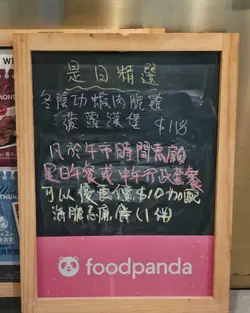 是日精選
冬陰功蝦肉脆雞
菠蘿漢堡 $118
凡於午市時間惠顧
是日午餐或中午行政套餐
可以優惠價 $10 加配
foodpanda